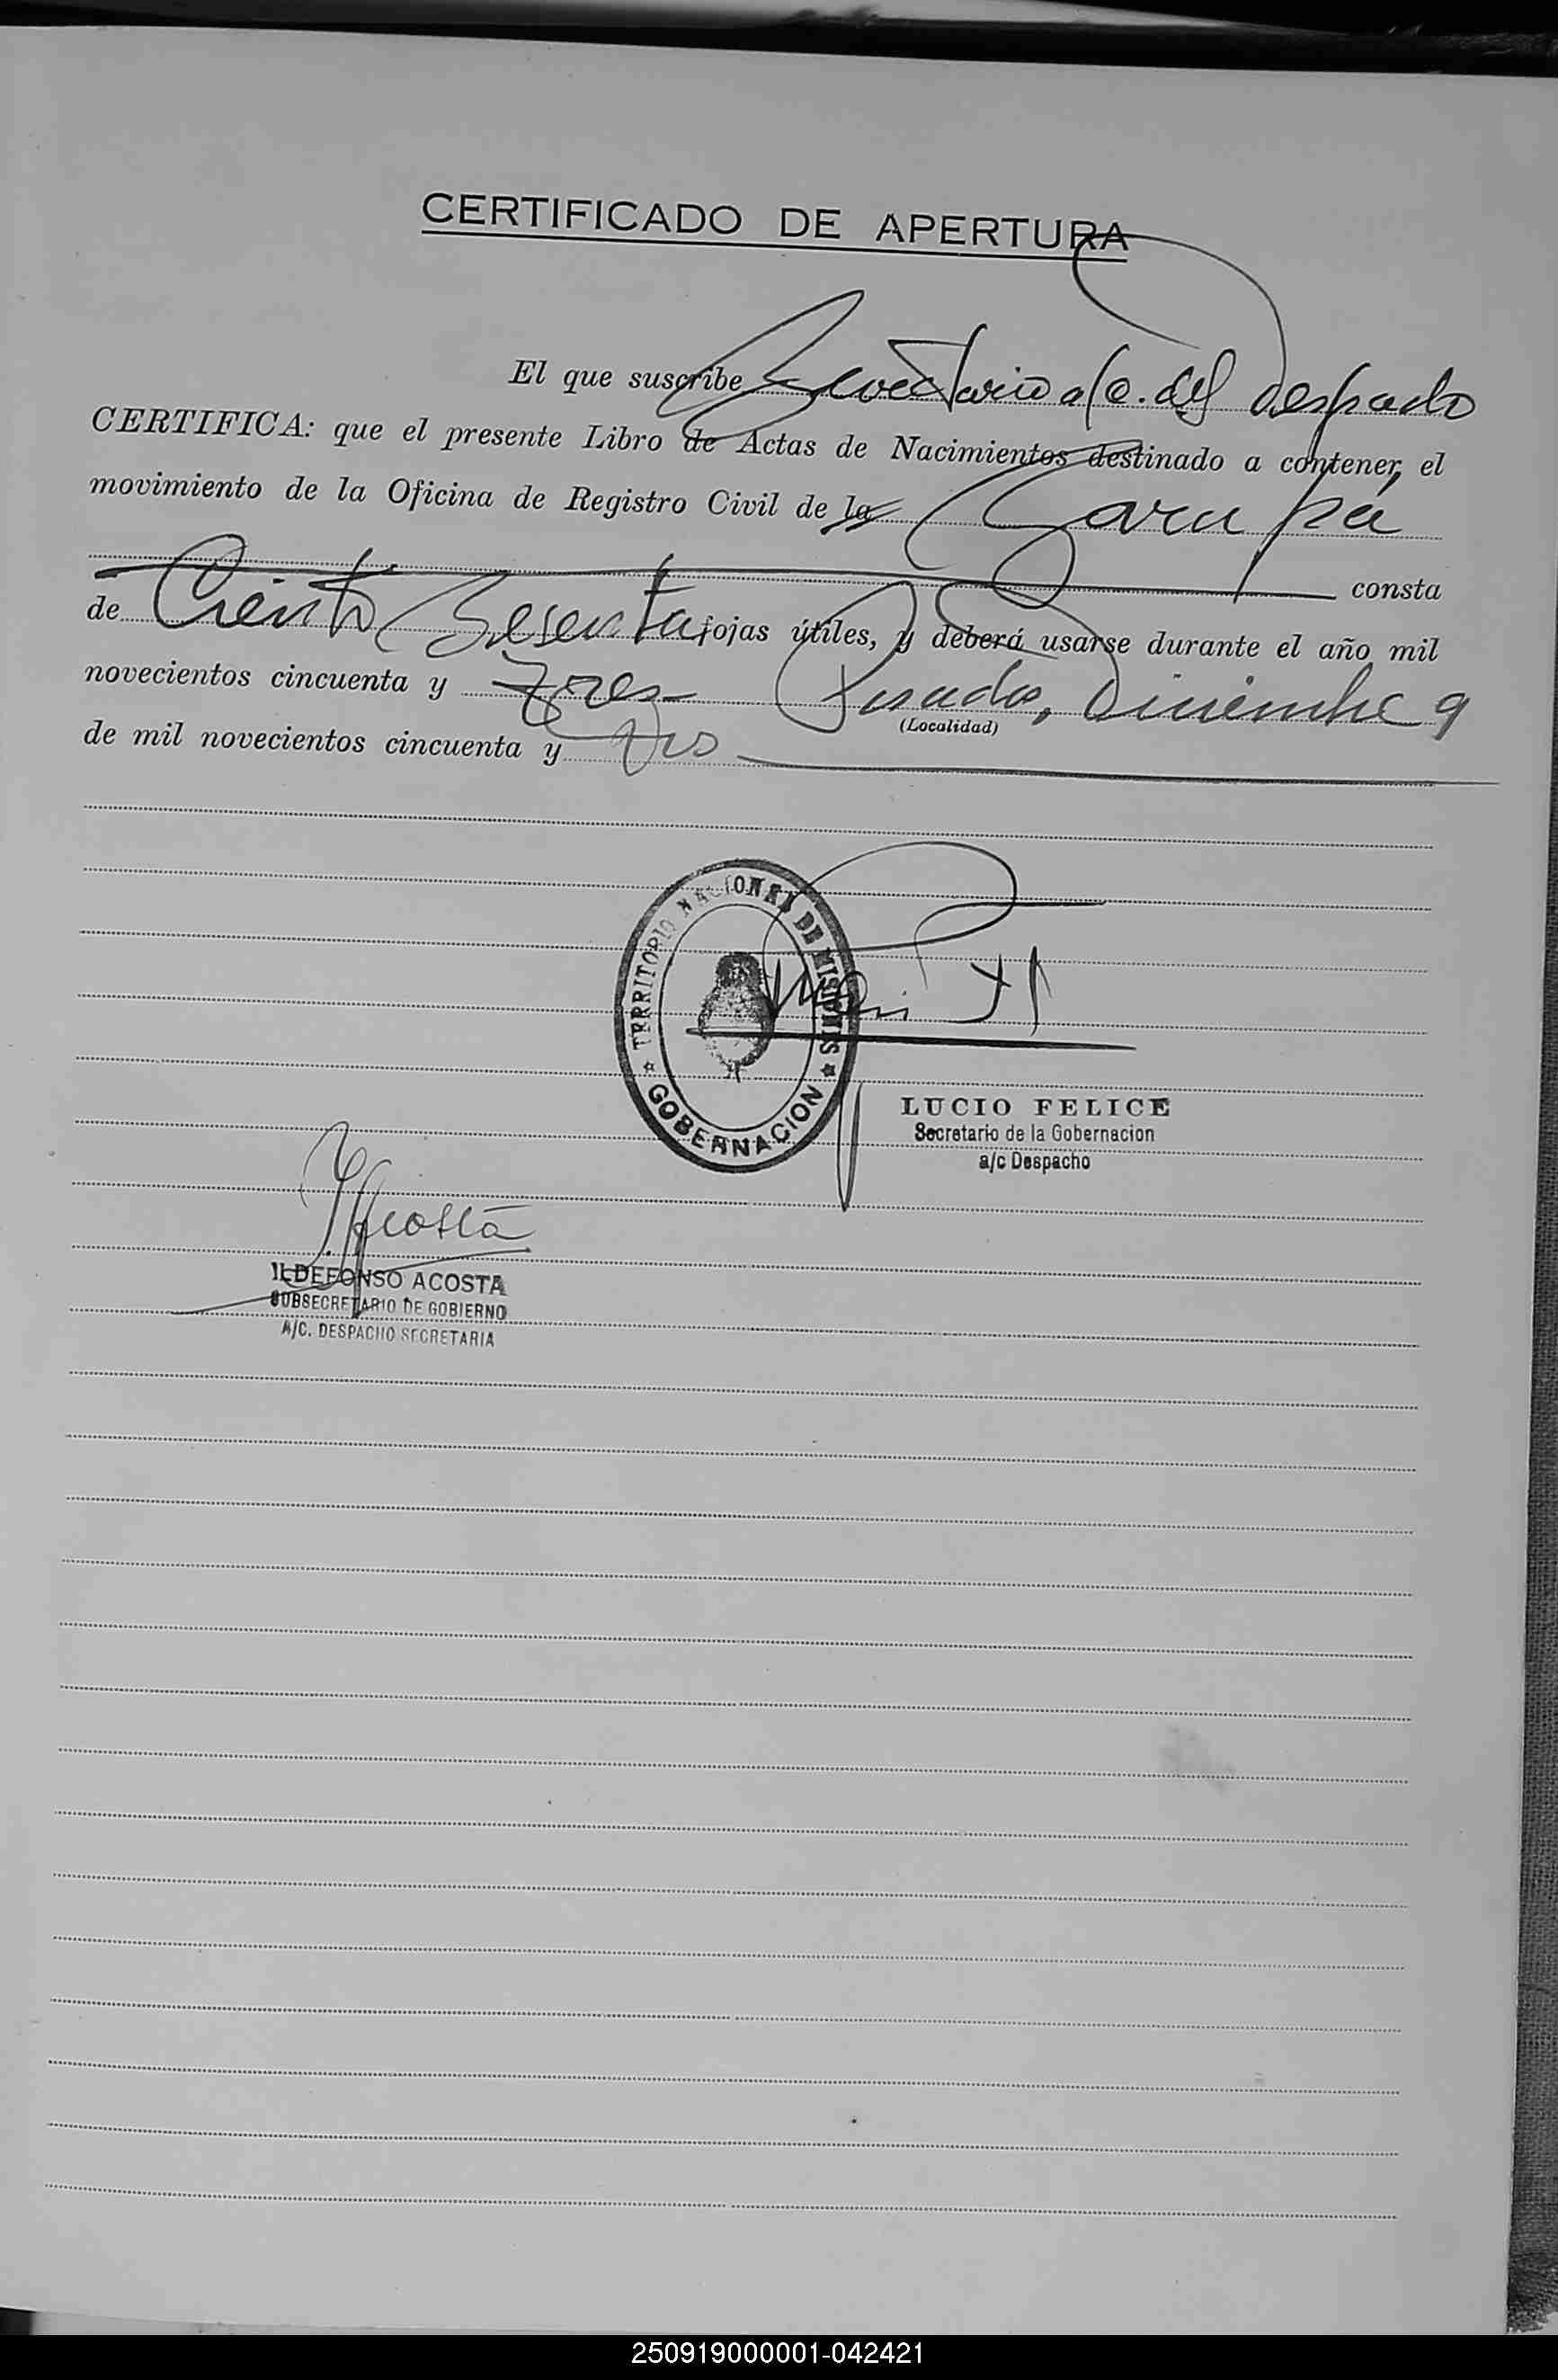 CERTIFICADO DE APERTURA
El que suscribe Secretario a/c. del Despacho
CERTIFICA: que el presente Libro de Actas de Nacimientos destinado a contener, el
movimiento de la Oficina de Registro Civil de la Garupá
consta
de Ciento Sesenta fojas útiles, y deberá usarse durante el año mil
novecientos cincuenta y Tres Posadas, Diciembre 9
(Localidad)
de mil novecientos cincuenta y dos
TERRITORIO NACIONAL DE MISIONES
GOBERNACION
LUCIO FELICE
Secretario de la Gobernacion
a/c Despacho
Acosta
ILDEFONSO ACOSTA
SUBSECRETARIO DE GOBIERNO
A/C. DESPACHO SECRETARIA
250919000001-042421